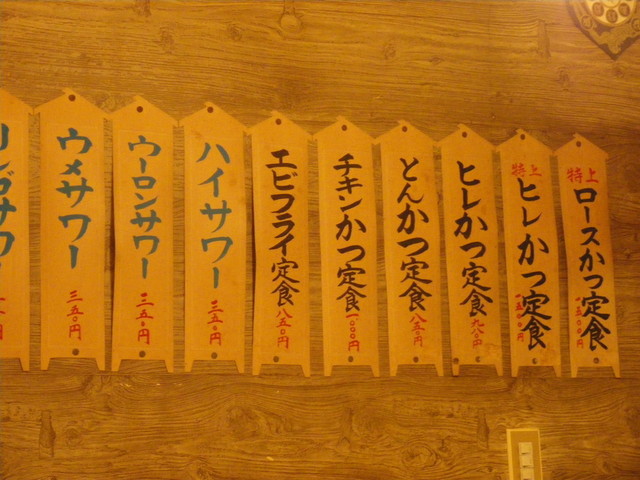 特上
ロースかつ定食
一五〇〇円
特上
ヒレかつ定食
一五〇〇円
ヒレかつ定食
九八〇円
とんかつ定食
八五〇円
チキンかつ定食
一、〇〇〇円
エビフライ定食
八五〇円
ハイサワー
三五〇円
ウーロンサワー
三五〇円
ウメサワー
三五〇円
リンゴサワー